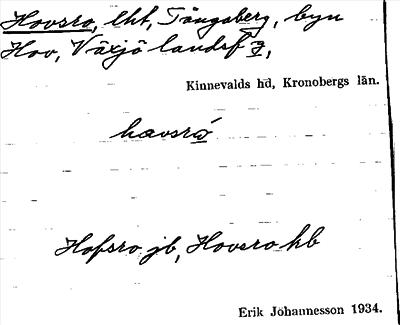 Hovsro, lht, Tångsberg, byn
Hov, Växjö landsf z,
Kinnevalds hd, Kronobergs län.
havsrώ
Hofsro jb, Hovsro hb
Erik Johannesson 1934.